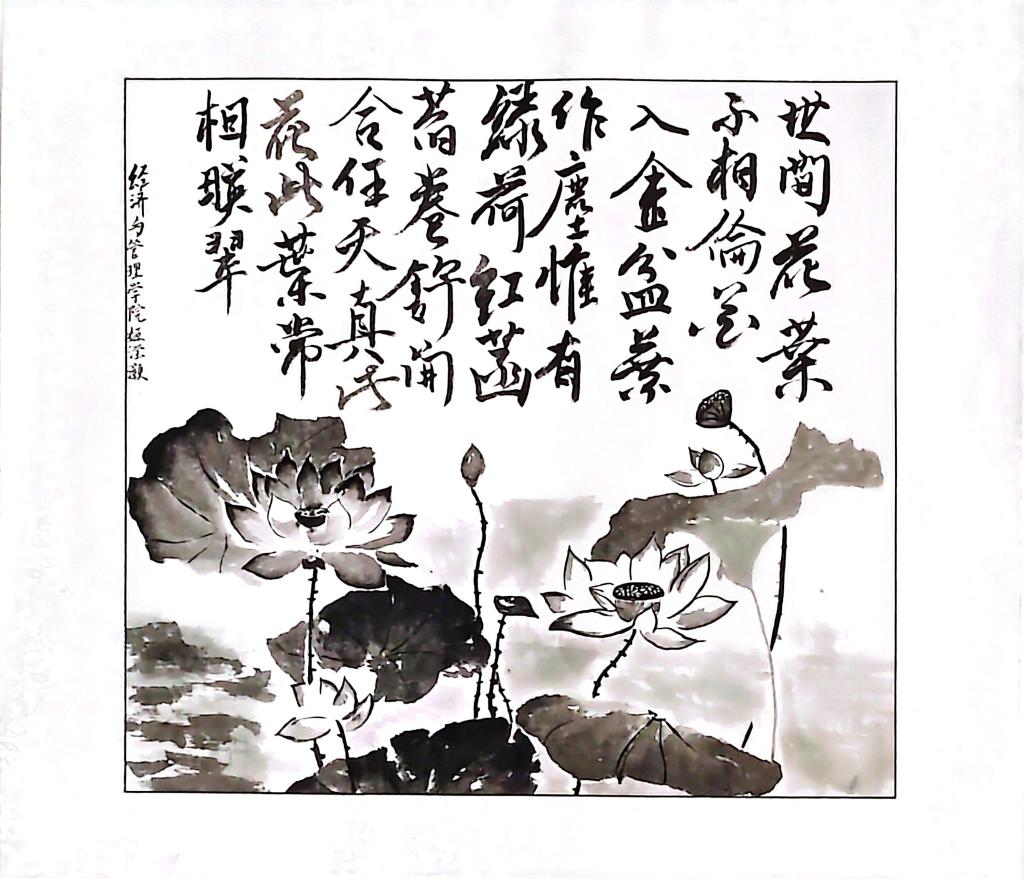 世間花葉
不相倫花
入金盆葉
作塵惟有
綠荷紅菡
萏卷舒開
合任天真此
花此葉常
相暎翠
经济与管理学院